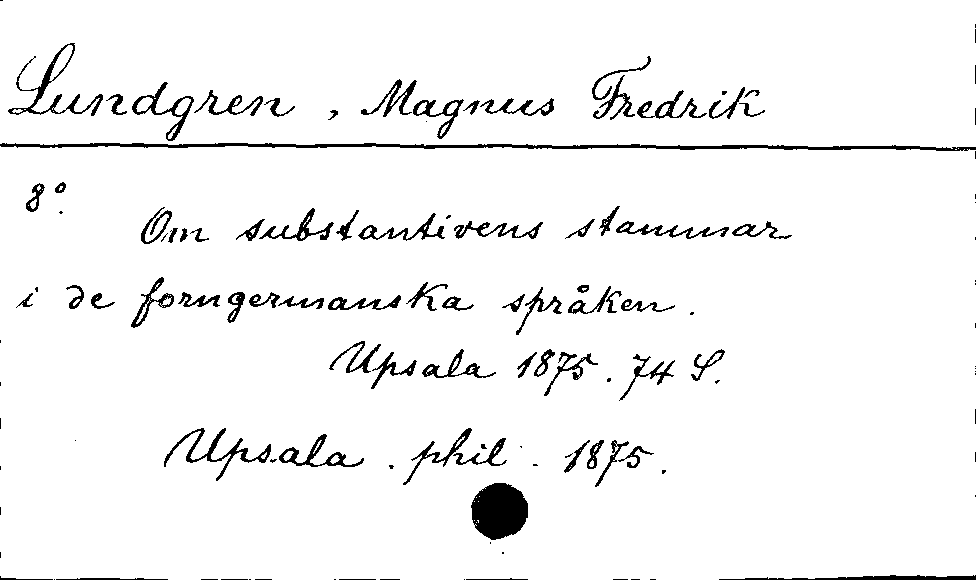 Lundgren, Magnus Fredrik
8°.
Om substantivens stammar
i de forngermanska språken.
Upsala 1875. 74 S.
Upsala. phil. 1875.